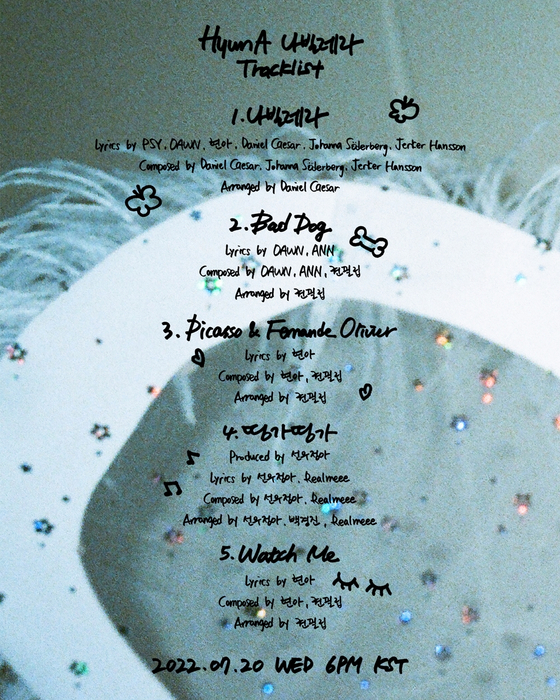 HyunA 나빌레라
Tracklist
1.나빌레라
Lyrics by PSY, DAWN, 현아, Daniel Caesar, Johanna Söderberg, Jerker Hansson
Composed by Daniel Caesar, Johanna Söderberg, Jerker Hansson
Arranged by Daniel Caesar
2.Bad Dog
Lyrics by DAWN, ANN
Composed by DAWN, ANN, 전필립
Arranged by 전필립
3.Picasso & Fernande Olivier
Lyrics by 현아
Composed by 현아, 전필립
Arranged by 전필립
4.띵가띵가
Produced by 선우정아
Lyrics by 선우정아, Realmeee
Composed by 선우정아, Realmeee
Arranged by 선우정아, 백경진, Realmeee
5.Watch Me
Lyrics by 현아
Composed by 현아, 전필립
Arranged by 전필립
2022.07.20 WED 6PM KST